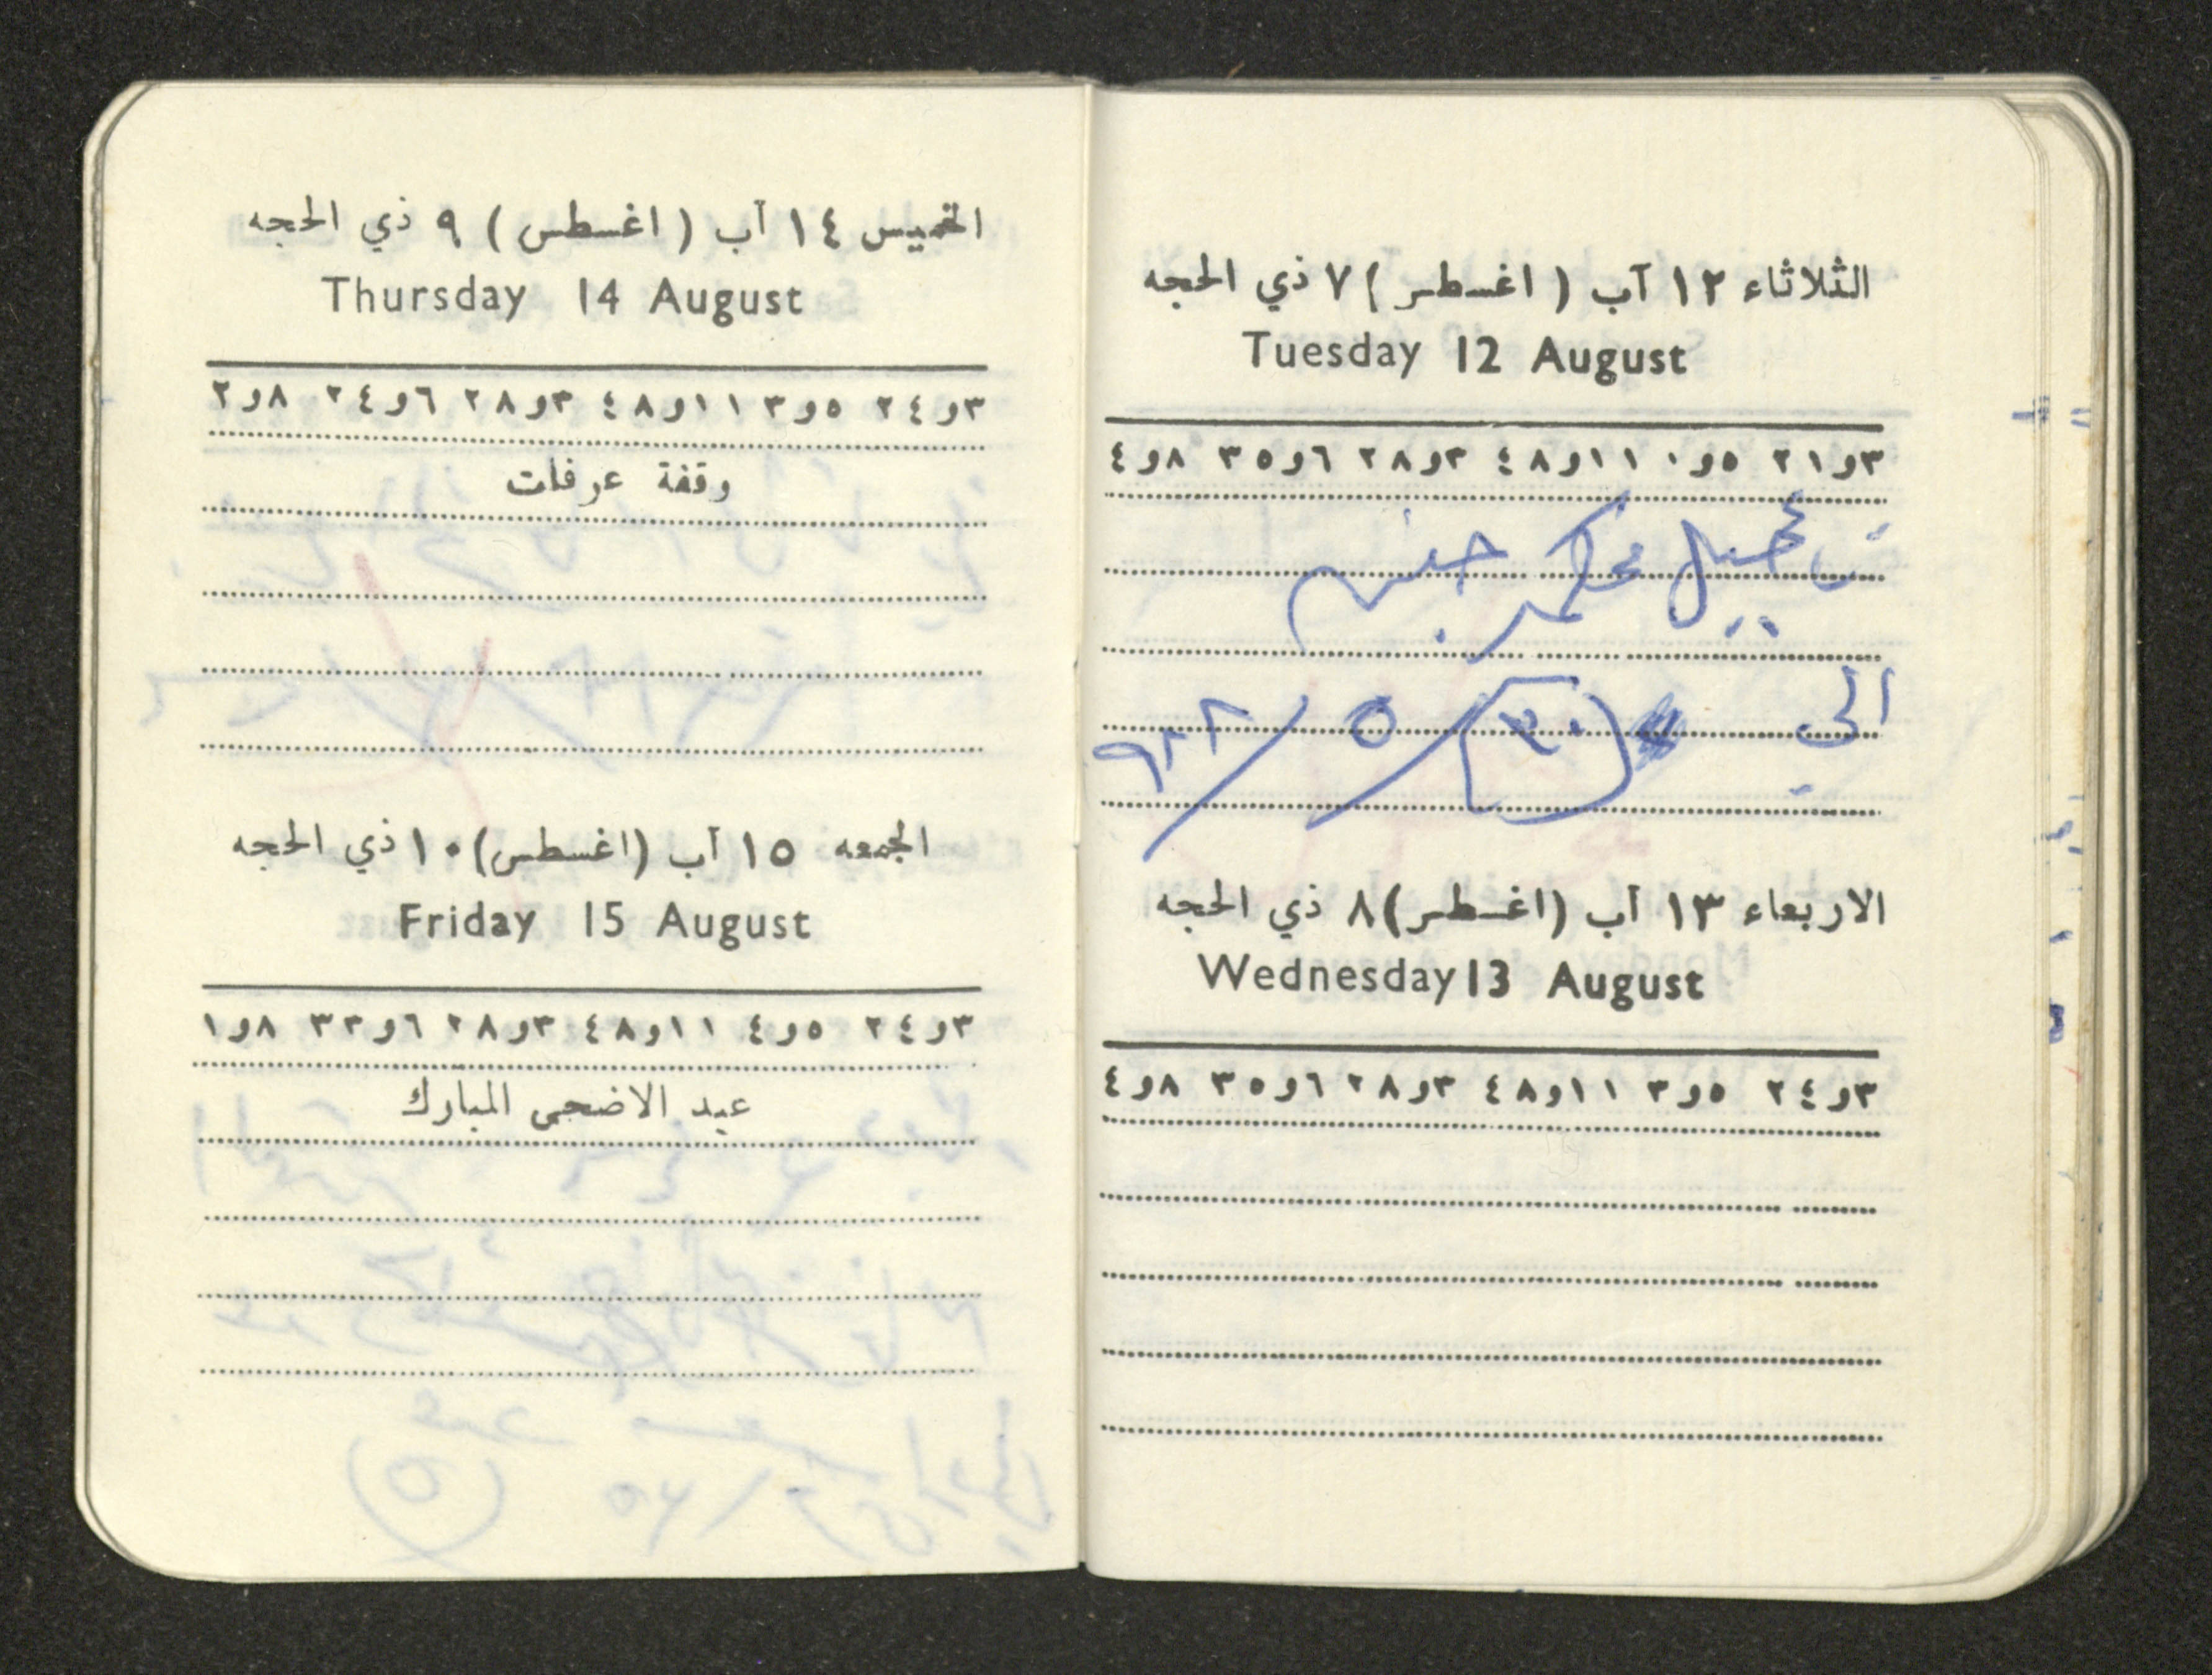 الثلاثاء ١٢ آب (اغسطس) ٧ ذي الحجه
Tuesday 12 August
٣و٢١ ٥و٠ ١١و٤٨ ٣و٢٨ ٦و٣٥ ٨و٤
تأجيل محكمة جنين
الى ٣٠ / ٥ / ٩٨٨
الاربعاء ١٣ آب (اغسطس) ٨ ذي الحجه
Wednesday 13 August
٣و٢٤ ٥و٣ ١١و٤٨ ٣و٢٨ ٦و٣٥ ٨و٤
الخميس ١٤ آب (اغسطس) ٩ ذي الحجه
Thursday 14 August
٣و٢٤ ٥و٣ ١١و٤٨ ٣و٢٨ ٦و٣٤ ٨و٢
وقفة عرفات
الجمعه ١٥ آب (اغسطس) ١٠ ذي الحجه
Friday 15 August
٣و٢٤ ٥و٤ ١١و٤٨ ٣و٢٨ ٦و٣٣ ٨و١
عيد الاضحى المبارك